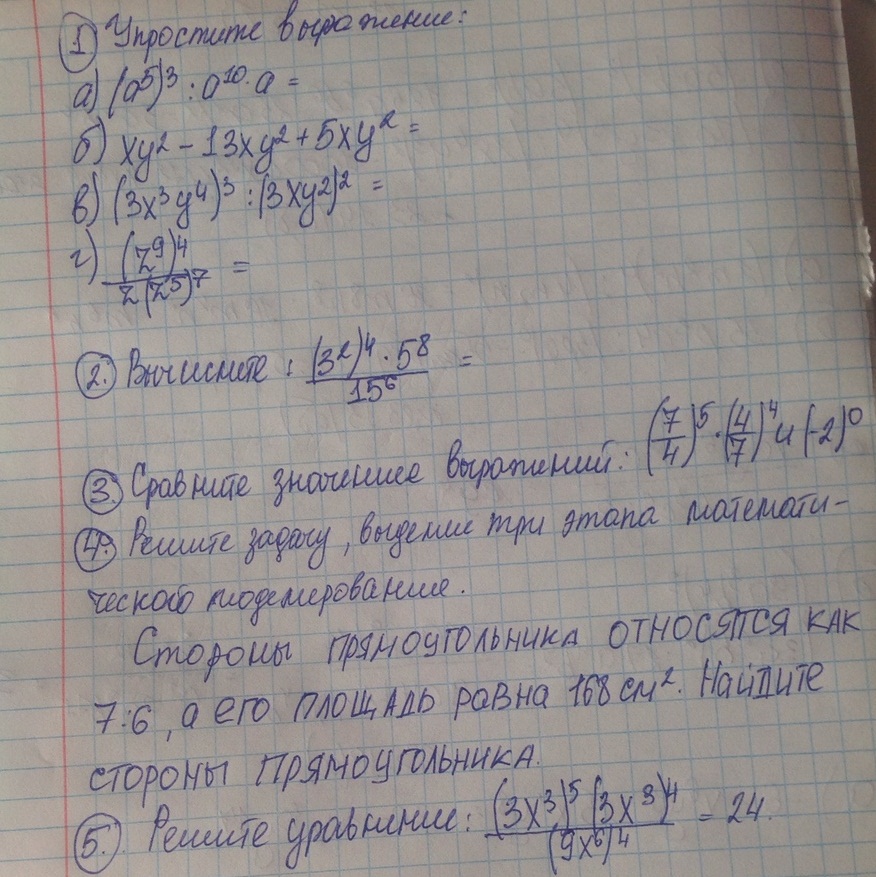 1 Упростите выражение:
а) (a⁵)³ : a¹⁰ · a =
б) xy² - 13xy² + 5xy² =
в) (3x³y⁴)³ : (3xy²)² =
г) (z⁹)⁴ / z(z⁵)⁷ =
2. Вычислите: (3²)⁴ · 5⁸ / 15⁶ =
3. Сравните значение выражений: (7/4)⁵ · (4/7)⁴ и (-2)⁰
4. Решите задачу, выделив три этапа математи-
ческого моделирования.
Стороны прямоугольника относятся как
7:6, а его площадь равна 168 см². Найдите
стороны прямоугольника.
5. Решите уравнение: (3x³)⁵ (3x³)⁴ / (9x⁶)⁴ = 24.